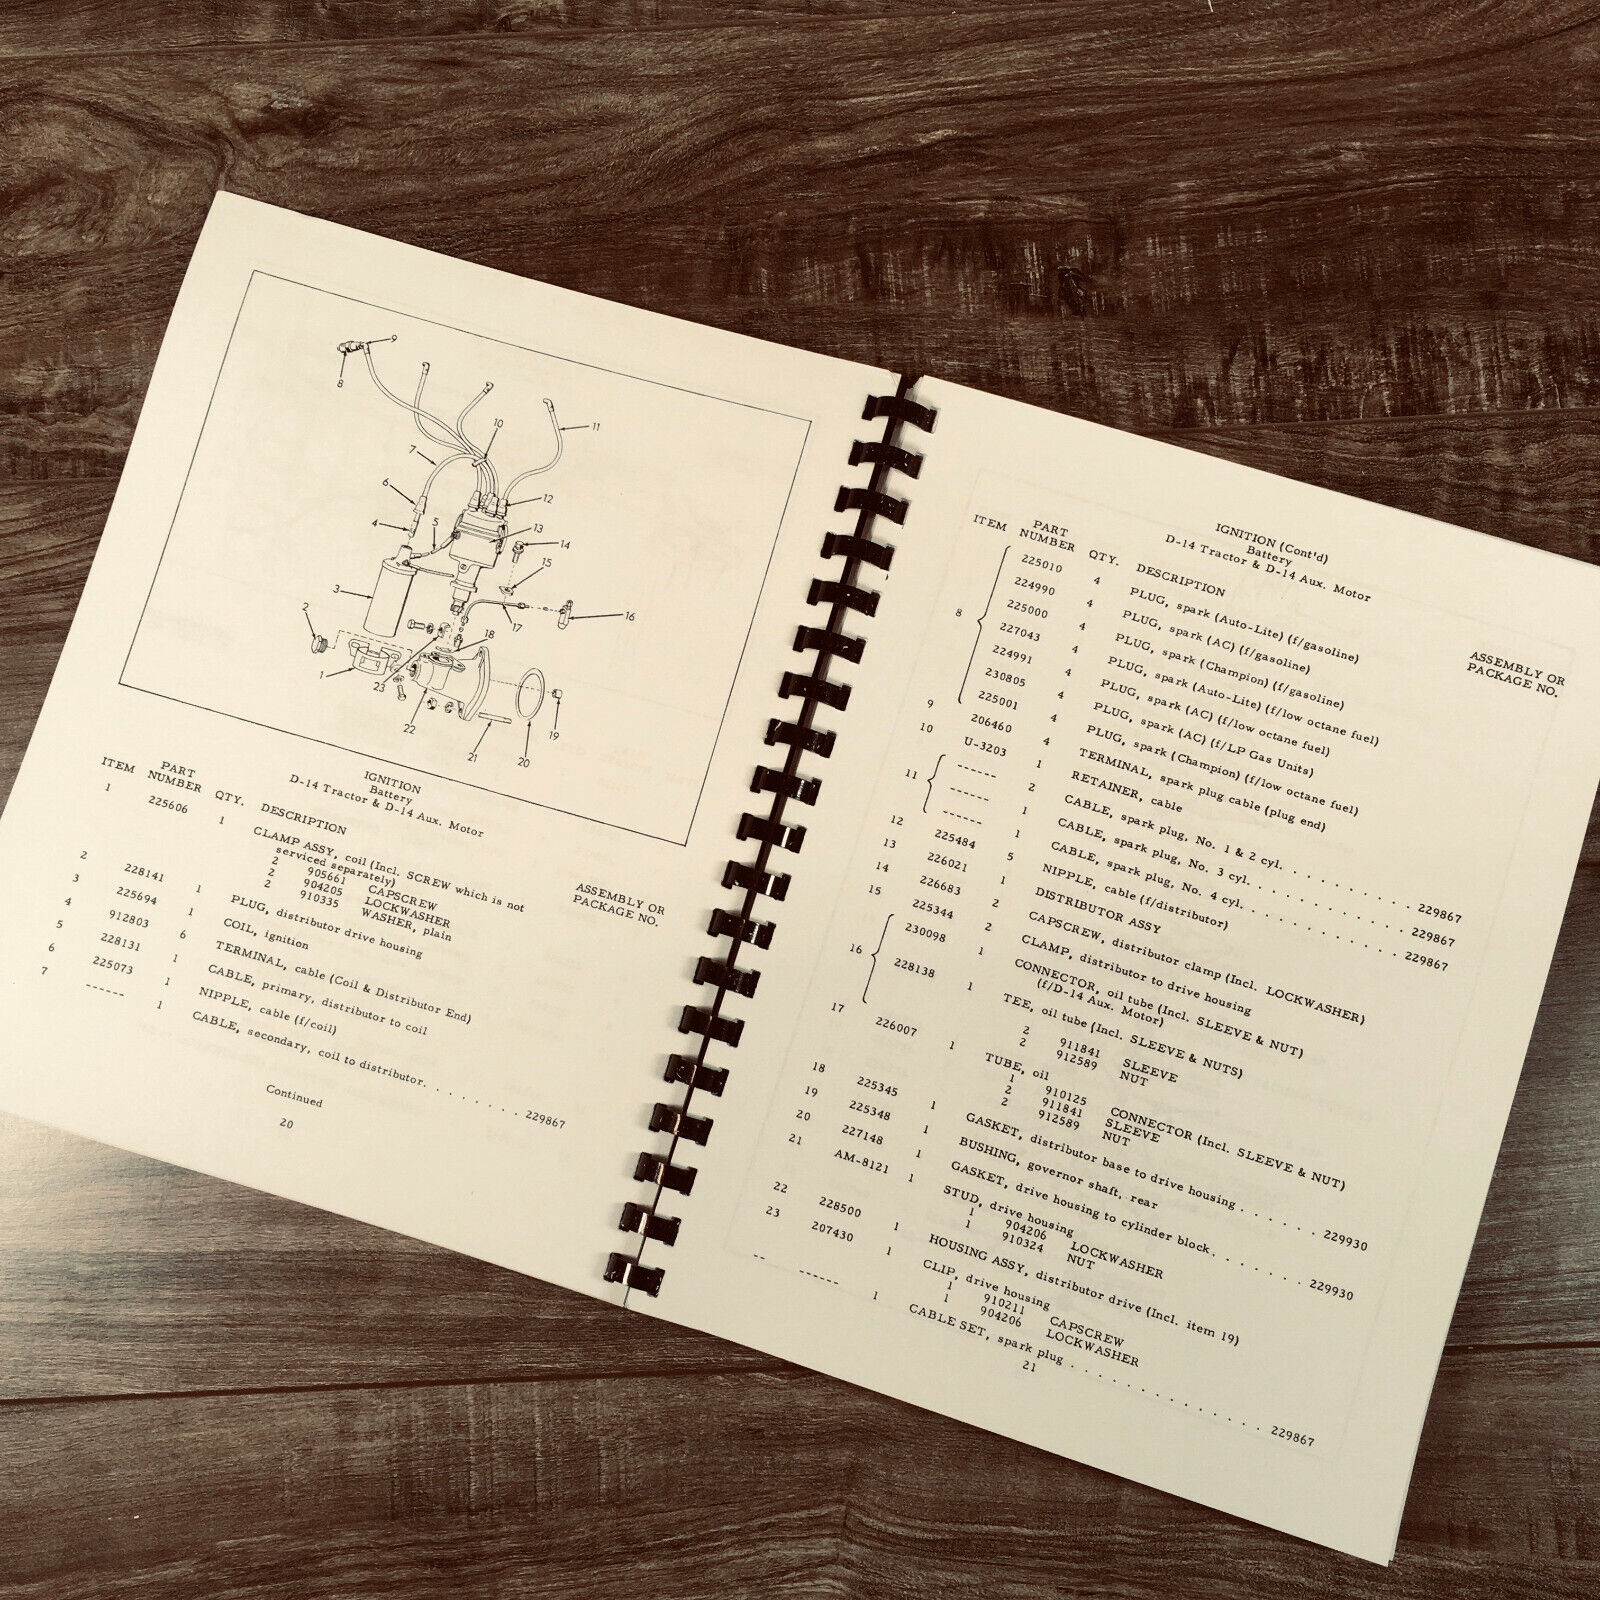 9
8
10
11
7
6
12
4
5
13
14
15
3
2
16
17
18
1
23
22
19
21
20
IGNITION
Battery
D-14 Tractor & D-14 Aux. Motor
ITEM PART NUMBER QTY. DESCRIPTION ASSEMBLY OR PACKAGE NO.
1 225606 1 CLAMP ASSY, coil (Incl. SCREW which is not
serviced separately)
2 905661 CAPSCREW
2 904205 LOCKWASHER
2 910335 WASHER, plain
2 228141 1 PLUG, distributor drive housing
3 225694 1 COIL, ignition
4 912803 6 TERMINAL, cable (Coil & Distributor End)
5 228131 1 CABLE, primary, distributor to coil
6 225073 1 NIPPLE, cable (f/coil)
7 ------ 1 CABLE, secondary, coil to distributor. . . . . . . . 229867
Continued
20
IGNITION (Cont'd)
Battery
D-14 Tractor & D-14 Aux. Motor
ITEM PART NUMBER QTY. DESCRIPTION ASSEMBLY OR PACKAGE NO.
225010 4 PLUG, spark (Auto-Lite) (f/gasoline)
224990 4 PLUG, spark (AC) (f/gasoline)
225000 4 PLUG, spark (Champion) (f/gasoline)
8 227043 4 PLUG, spark (Auto-Lite) (f/low octane fuel)
224991 4 PLUG, spark (AC) (f/low octane fuel)
230805 4 PLUG, spark (AC) (f/LP Gas Units)
225001 4 PLUG, spark (Champion) (f/low octane fuel)
9 206460 4 TERMINAL, spark plug cable (plug end)
10 U-3203 1 RETAINER, cable
------ 2 CABLE, spark plug, No. 1 & 2 cyl. . . . . . . . . . 229867
11 ------ 1 CABLE, spark plug, No. 3 cyl. . . . . . . . . . . . 229867
------ 1 CABLE, spark plug, No. 4 cyl. . . . . . . . . . . . 229867
12 225484 5 NIPPLE, cable (f/distributor)
13 226021 1 DISTRIBUTOR ASSY
14 226683 2 CAPSCREW, distributor clamp (Incl. LOCKWASHER)
15 225344 2 CLAMP, distributor to drive housing
230098 1 CONNECTOR, oil tube (Incl. SLEEVE & NUT)
(f/D-14 Aux. Motor)
16 228138 1 TEE, oil tube (Incl. SLEEVE & NUTS)
2 911841 SLEEVE
2 912589 NUT
17 226007 1 TUBE, oil
1 910125 CONNECTOR (Incl. SLEEVE & NUT)
2 911841 SLEEVE
2 912589 NUT
18 225345 1 GASKET, distributor base to drive housing . . . . . . 229930
19 225348 1 BUSHING, governor shaft, rear
20 227148 1 GASKET, drive housing to cylinder block. . . . . . . . 229930
21 AM-8121 1 STUD, drive housing
1 904206 LOCKWASHER
1 910324 NUT
22 228500 1 HOUSING ASSY, distributor drive (Incl. item 19)
23 207430 1 CLIP, drive housing
1 910211 CAPSCREW
1 904206 LOCKWASHER
-- ------ 1 CABLE SET, spark plug . . . . . . . . . . . . . . . 229867
21